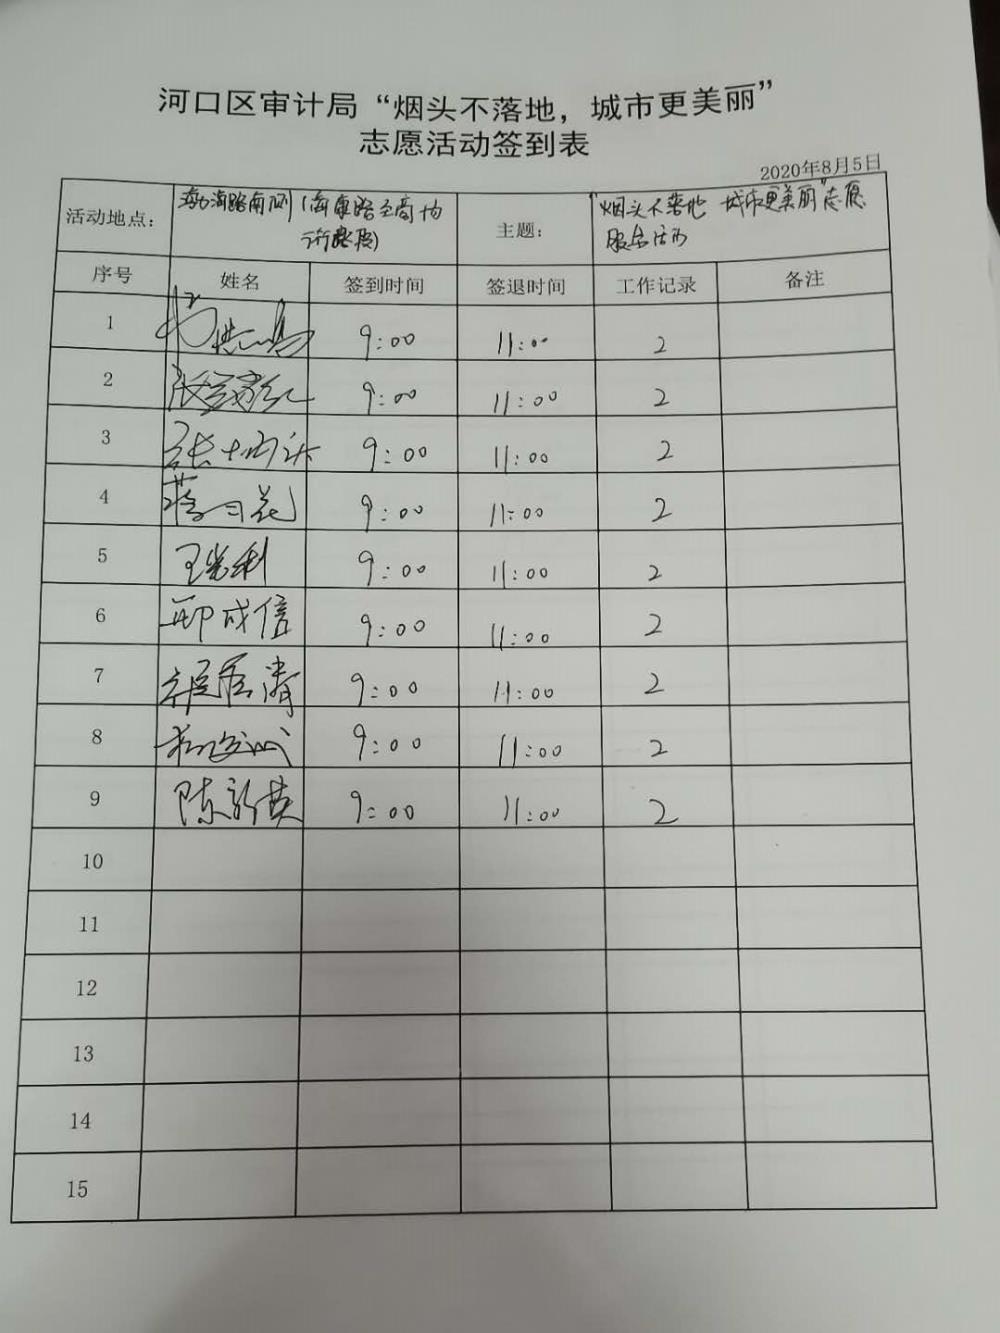 河口区审计局“烟头不落地，城市更美丽”
志愿活动签到表
2020年8月5日
活动地点： 渤海路南侧（海康路至商
主题： “烟头不落地 城市更美丽”志愿
服务活动
序号 姓名 签到时间 签退时间 工作记录 备注
1 9:00 11:00 2
2 9:00 11:00 2
3 9:00 11:00 2
4 9:00 11:00 2
5 9:00 11:00 2
6 成信 9:00 11:00 2
7 9:00 11:00 2
8 9:00 11:00 2
9 陈新英 9:00 11:00 2
10
11
12
13
14
15